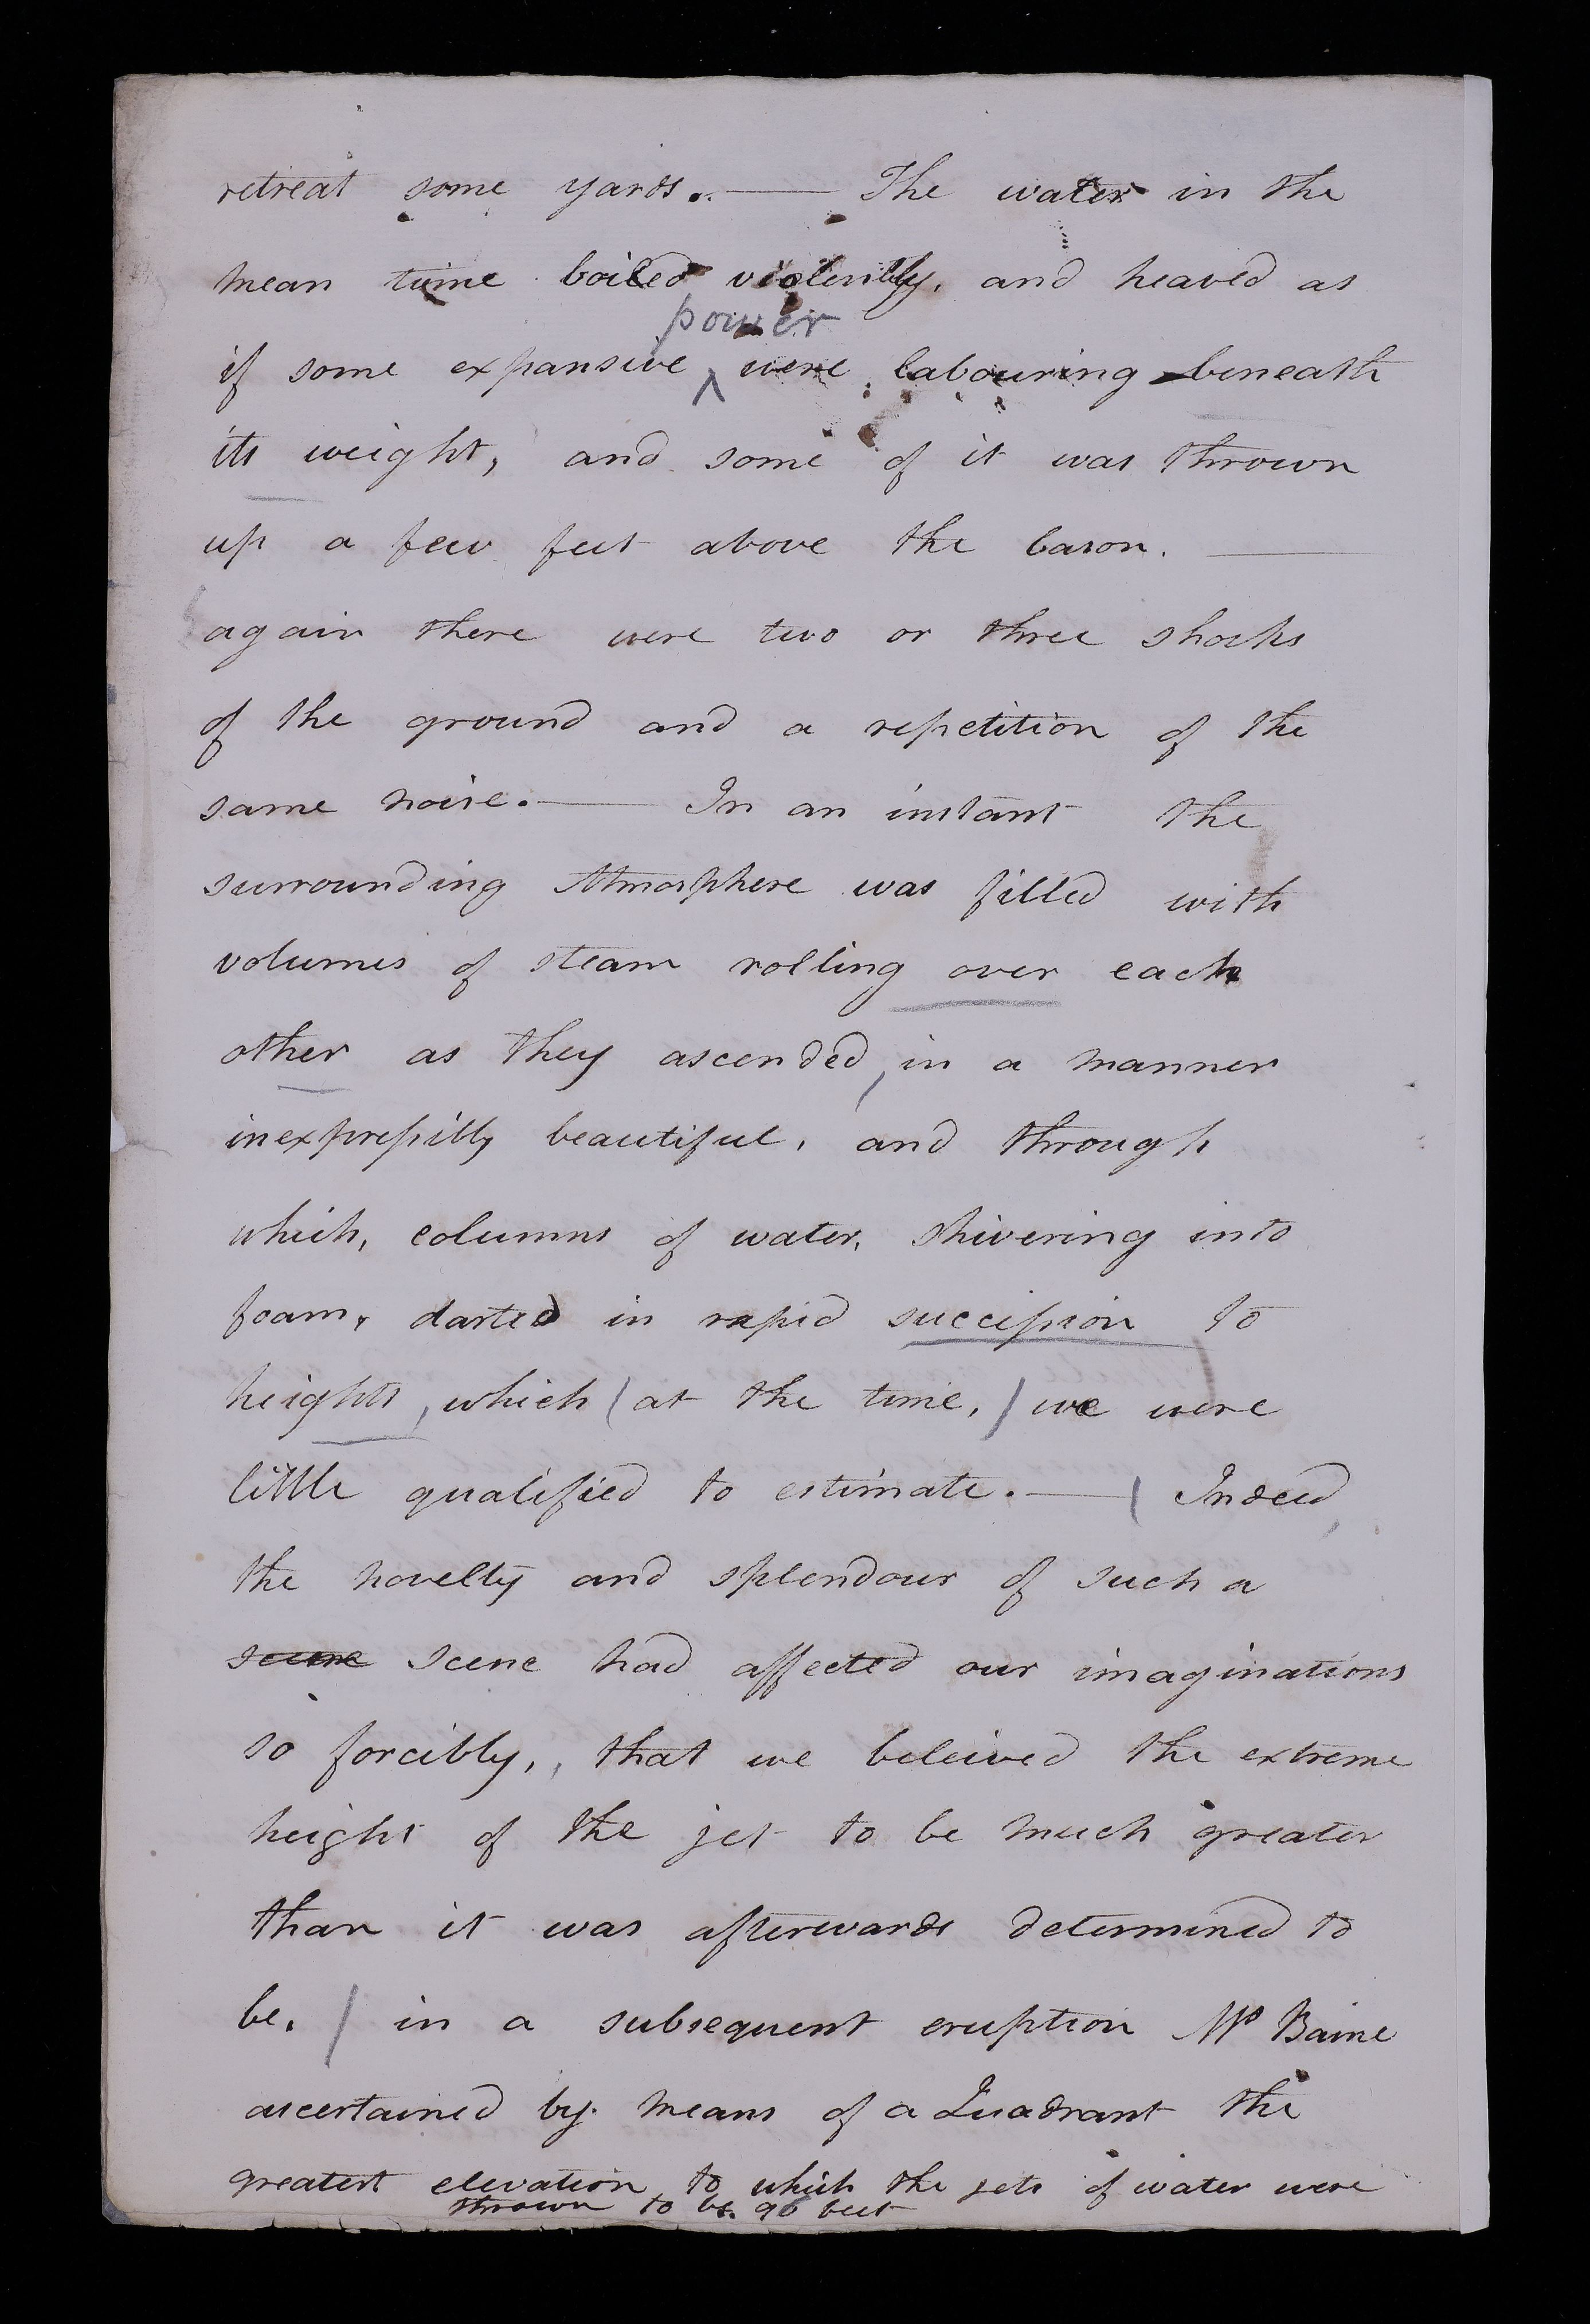 retreat some yards. — The water in the
mean time boiled violently, and heaved as
power
if some expansive ^ were labouring beneath
its weight, and some of it was thrown
up a few feet above the bason. —
again there were two or three shocks
of the ground and a repetition of the
same noise. — In an instant the
surrounding Atmosphere was filled with
volumes of steam rolling over each
other as they ascended, in a manner
inexpreſsibly beautiful, and through
which, columns of water, shivering into
foam, darted in rapid succeſsion to
heights, which ( at the time, ) we were
little qualified to estimate. — ( Indeed,
the novelty and splendour of such a
scene scene had affected our imaginations
so forcibly, that we beleived the extreme
height of the jet to be much greater
than it was afterwards determined to
be. / in a subsequent eruption Mr Baine
ascertained by means of a Quadrant the
greatest elevation to which the jets of water were
thrown to be 96 feet